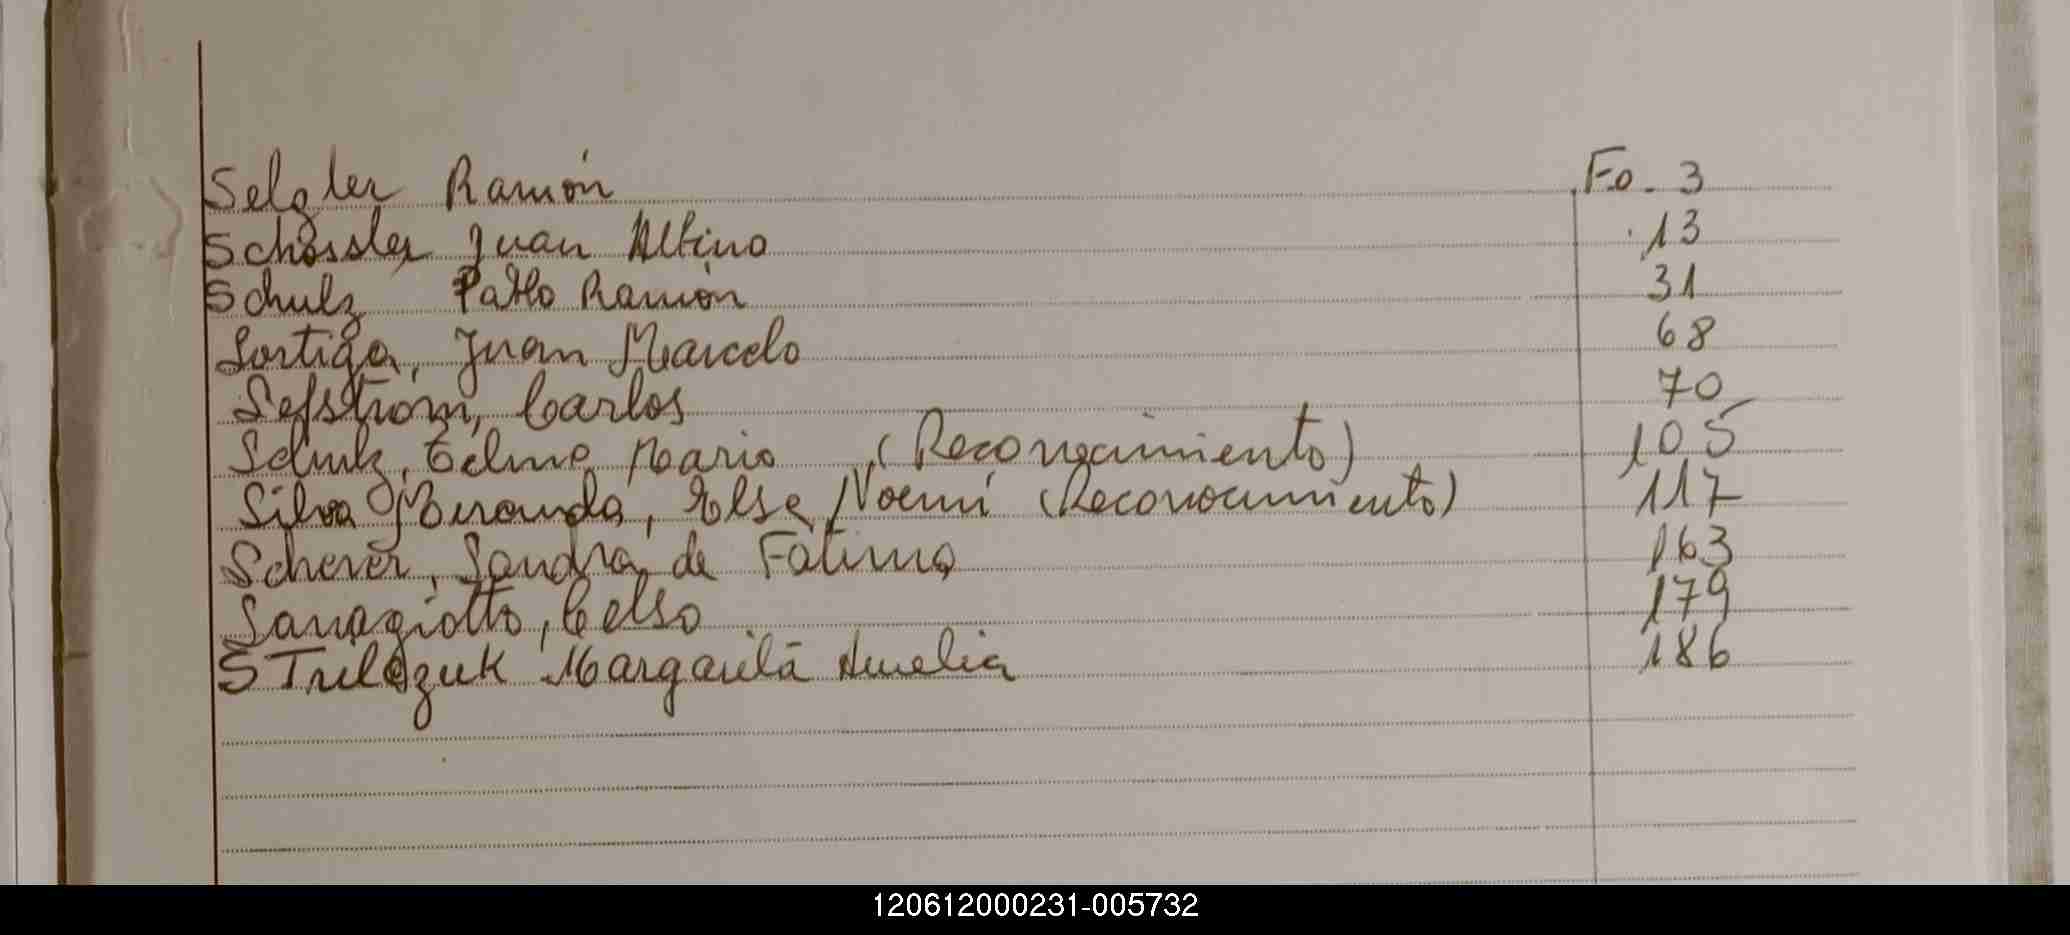 Selgler Ramón Fo. 3
Schössler Juan Albino 13
Schulz Pablo Ramón 31
Sortiga, Juan Marcelo 68
Sefstrom, Carlos 70
Schulz, Telmo Mario (Reconocimiento) 105
Silva Miranda, Elsa Noemí (Reconocimiento) 117
Scherer, Sandra de Fátima 163
Sanagiotto, Celso 179
STrilczuk Margarita Amelia 186
120612000231-005732